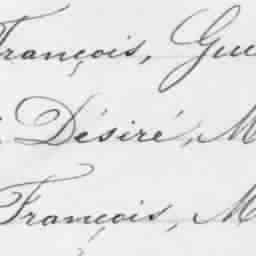 François, Gue
Désiré, M
François, M